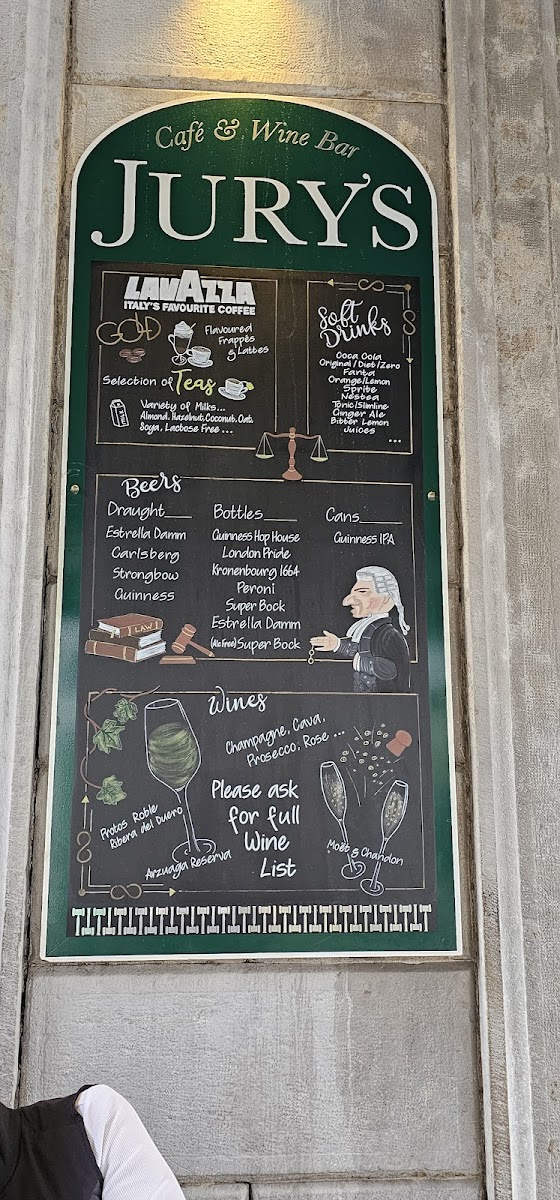 Café & Wine Bar
JURY'S
LAVAZZA
ITALY'S FAVOURITE COFFEE
GOLD
Flavoured
Frappès
& Lattes
Selection of Teas
MILK
Variety of Milks...
Almond, Hazelnut, Coconut, Oat,
Soya, Lactose Free ...
Soft
Drinks
Coca Cola
Original / Diet / Zero
Fanta
Orange/Lemon
Sprite
Nestea
Tonic/Slimline
Ginger Ale
Bitter Lemon
Juices
...
Beers
Draught
Estrella Damm
Carlsberg
Strongbow
Guinness
Bottles
Guinness Hop House
London Pride
Kronenbourg 1664
Peroni
Super Bock
Estrella Damm
(Alc Free) Super Bock
Cans
Guinness IPA
LAW
Wines
Champagne, Cava,
Prosecco, Rose ...
Protos Roble
Ribera del Duero
Arzuaga Reserva
Please ask
for full
Wine
List
Moët & Chandon